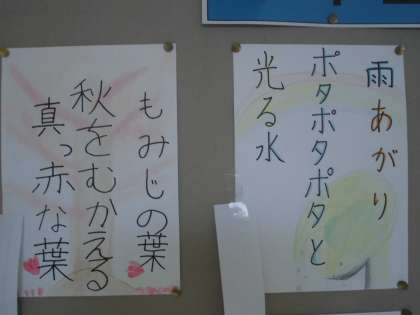 雨あがり
ポタポタポタと
光る水
もみじの葉
秋をむかえる
真っ赤な葉